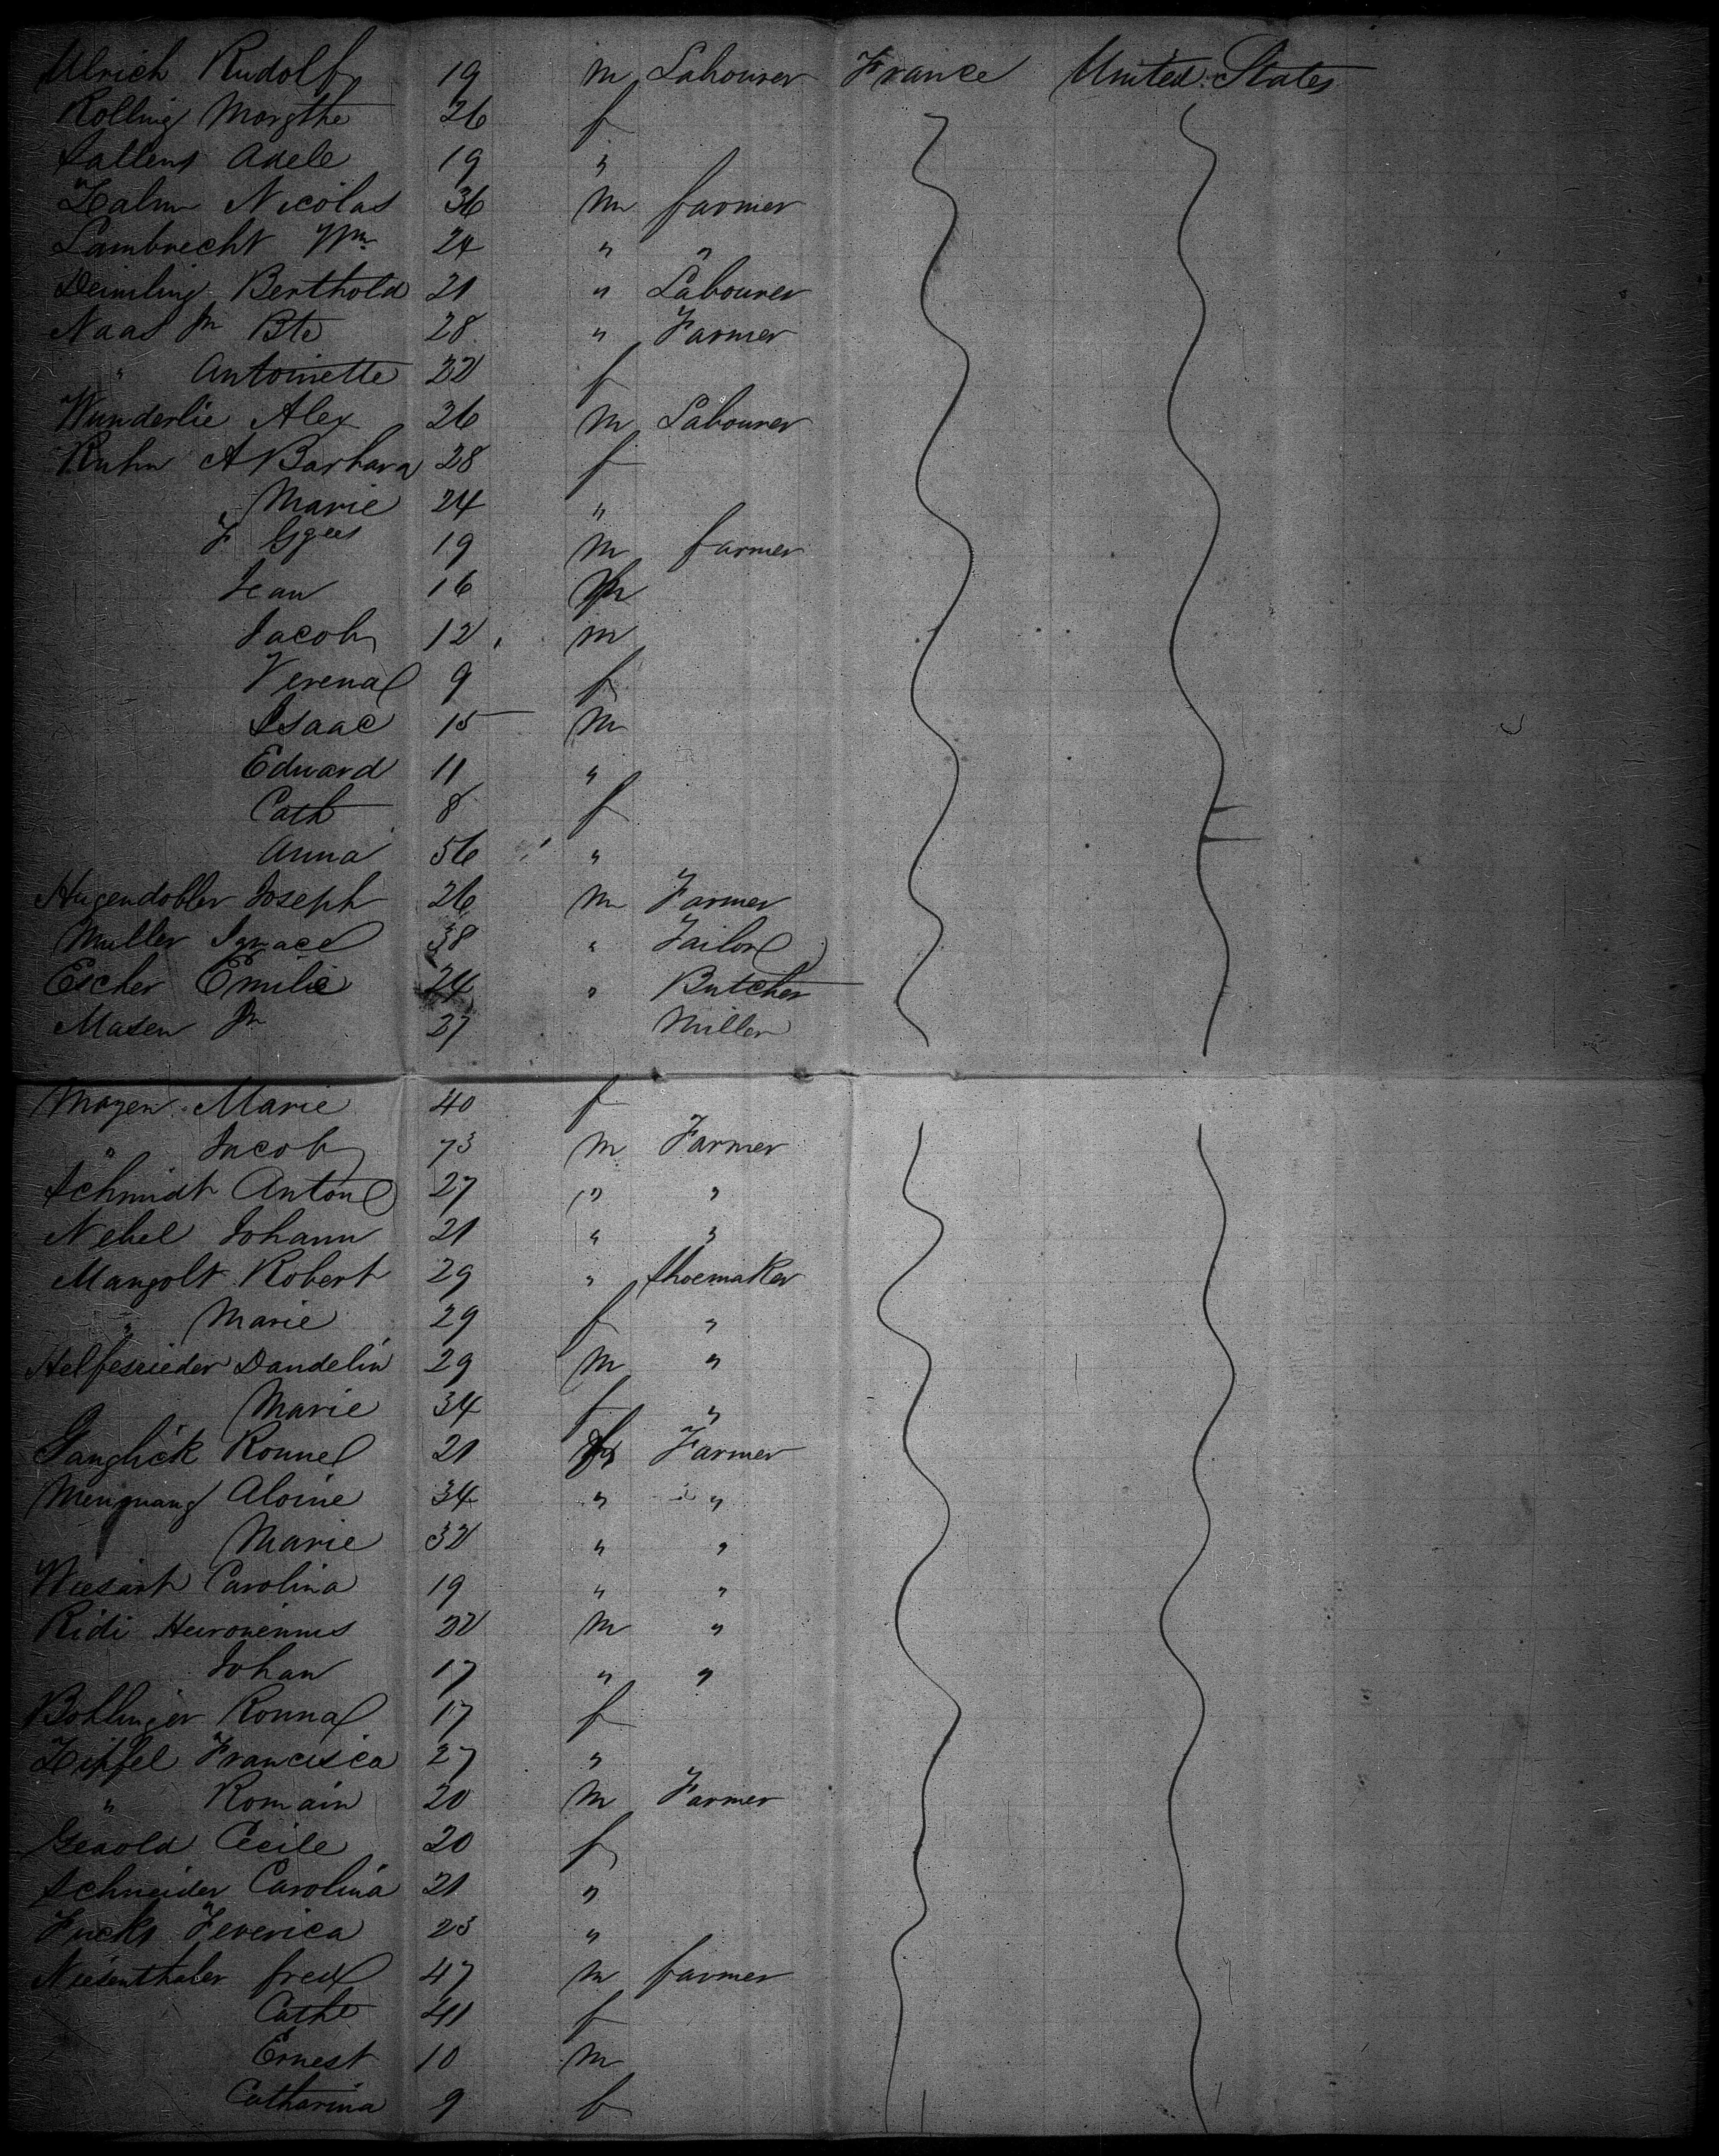 Ulrich Rudolf 19 m Labourer France United States
Rolling Margthe 26 f
Sallens Adele 19 "
Zalm Nicolas 36 m farmer
Lambrecht Wm 24 " "
Deimling Berthold 21 " Labourer
Naas Jn Bte 28 " Farmer
" Antoinette 22 f
Wunderlie Alex 26 m Labourer
Kuhn A Barbara 28 f
Marie 24 "
F 19 m farmer
Jean 16 m
Jacob 12 m
Verena 9 f
Isaac 15 m
Edward 11 "
Cath 8 f
Anna 56 "
Hugendobler Joseph 26 m Farmer
Muller Ignace 38 " Tailor
Escher Emilie 24 " Butcher
Masen Jn 27 Miller
Mazen Marie 40 f
" Jacob 73 m Farmer
Schmidt Anton 27 " "
Nebel Johann 21 " "
Mangolt Robert 29 " Shoemaker
" Marie 29 f "
Helfesrieder Dandelin 29 m "
Marie 34 f "
Ronnel 21 Farmer
Aloine 34 " "
Marie 32 " "
Carolina 19 " "
Ridi 22 m "
Johan 17 " "
Bollinger Ronna 17 f
Zipfel Francisca 27 "
" Romain 20 m Farmer
Cecile 20 f
Schneider Carolina 21 "
Fucks Feverica 23 "
Niesenthaler fred 47 m farmer
Cathe 41 f
Ernest 10 m
Catharina 9 f